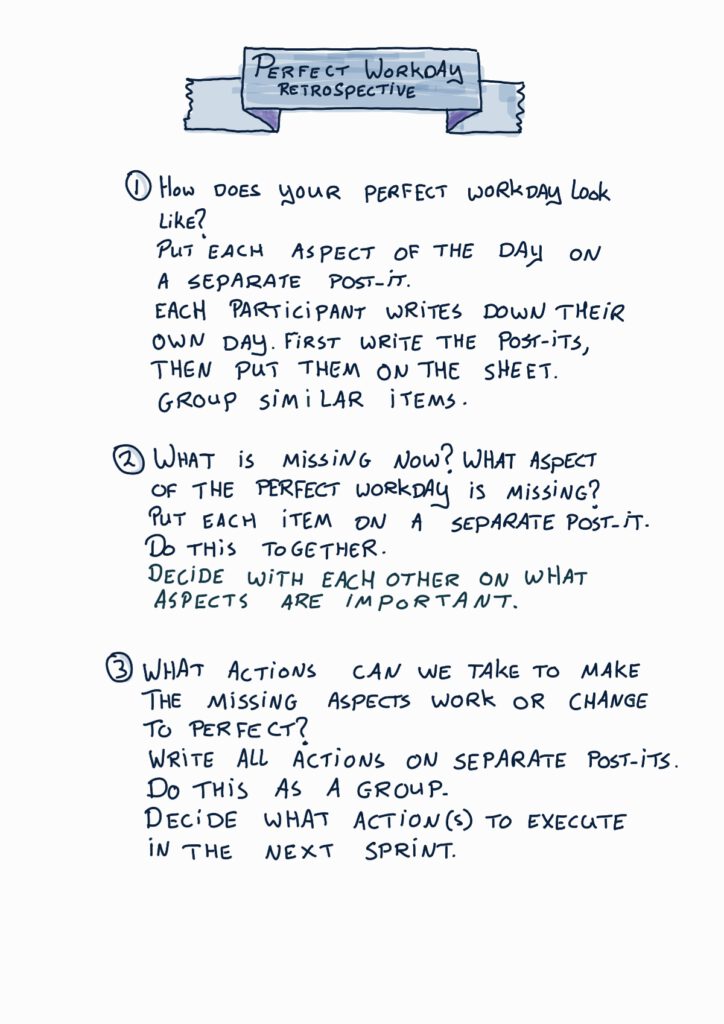 PERFECT WORKDAY
RETROSPECTIVE
1 HOW DOES YOUR PERFECT WORKDAY LOOK
LIKE?
PUT EACH ASPECT OF THE DAY ON
A SEPARATE POST-IT.
EACH PARTICIPANT WRITES DOWN THEIR
OWN DAY. FIRST WRITE THE POST-ITS,
THEN PUT THEM ON THE SHEET.
GROUP SIMILAR ITEMS.
2 WHAT IS MISSING NOW? WHAT ASPECT
OF THE PERFECT WORKDAY IS MISSING?
PUT EACH ITEM ON A SEPARATE POST-IT.
DO THIS TOGETHER.
DECIDE WITH EACH OTHER ON WHAT
ASPECTS ARE IMPORTANT.
3 WHAT ACTIONS CAN WE TAKE TO MAKE
THE MISSING ASPECTS WORK OR CHANGE
TO PERFECT?
WRITE ALL ACTIONS ON SEPARATE POST-ITS.
DO THIS AS A GROUP.
DECIDE WHAT ACTION(S) TO EXECUTE
IN THE NEXT SPRINT.